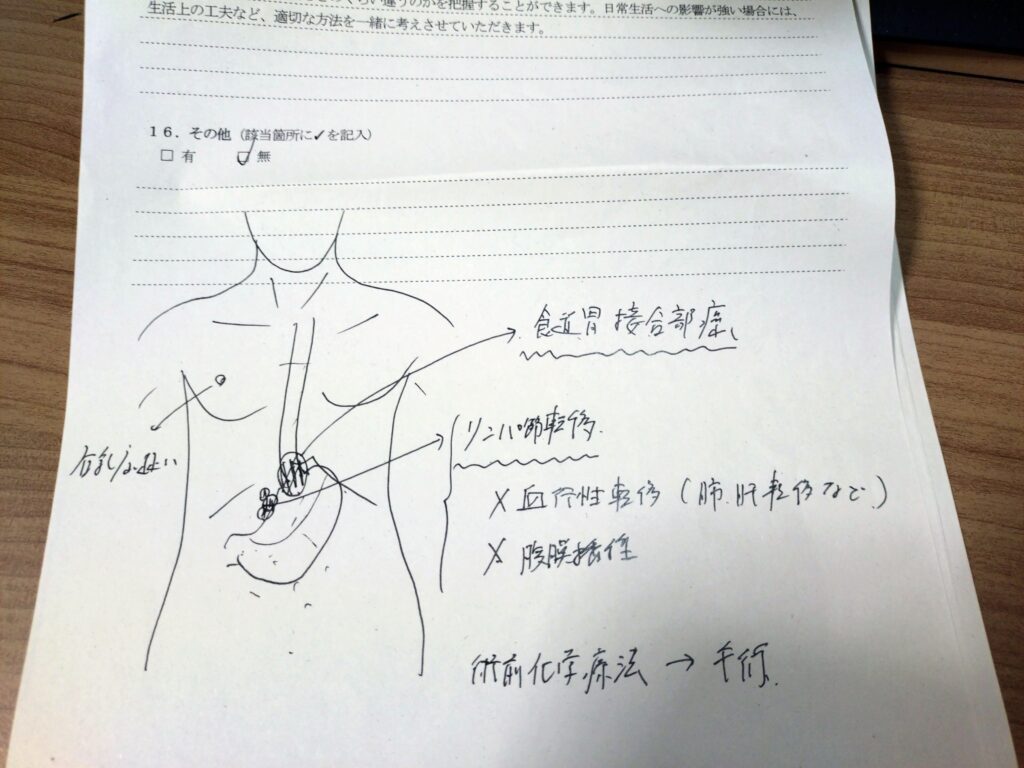 生活上の工夫など、適切な方法を一緒に考えさせていただきます。
くらい違うのかを把握することができます。日常生活への影響が強い場合には、
16. その他（該当箇所に✓を記入）
□ 有 ☑ 無
食道胃接合部癌
リンパ節転移
× 血行性転移（肺、肝転移など）
× 腹膜播種
術前化学療法 → 手術